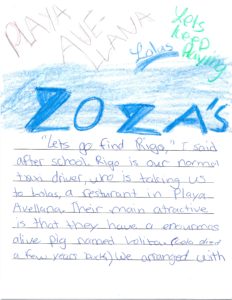 PLAYA
AVE
LLANA
Lolas
Lets
keep
playing
ZOZA'S
"Lets go find Rigo," I said
after school. Rigo is our normal
driver, who is taking us
to Lolas, a resturant in Playa
Avellana. Their main atractive
is that they have a enourmas
alive pig named (Lola died
a few years back). We arranged with